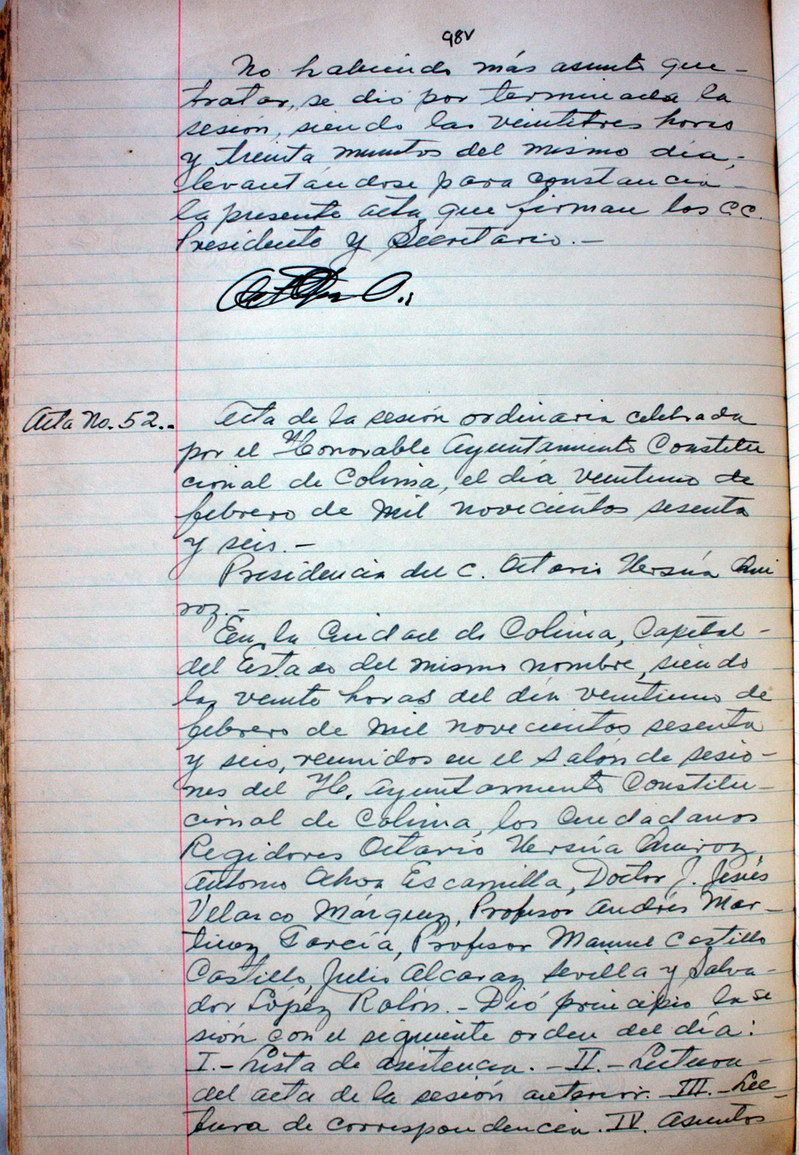 98V
No habiendo más asunto que-
tratar, se dió por terminada la
sesión, siendo las veintitres horas
y treinta minutos del mismo día,
levantándose para constancia-
la presente acta, que firman los C.C.
Presidente y Secretario.-
Acta No. 52.- Acta de la sesión ordinaria celebrada
por el Honorable Ayuntamiento Constitu
cional de Colima, el día veintiuno de
febrero de mil novecientos sesenta
y seis.-
Presidencia del C. Octavio Ursúa Qui
roz.-
En la Ciudad de Colima, Capital-
del Estado del mismo nombre, siendo
las veinte horas del día veintiuno de
febrero de mil novecientos sesenta
y seis, reunidos en el salón de sesio-
nes del H. Ayuntamiento Constitu-
cional de Colima, los Ciudadanos
Regidores Octavio Ursúa Quiroz,
Antonio Ochoa Escamilla, Doctor J. Jesús
Velasco Márquez, Profesor Andrés Mar-
tinez García, Profesor Manuel Castillo
Castillo, Julio Alcaraz Sevilla y Salva-
dor López Rolón.- Dió principio la se
sión con el siguiente orden del día:
I.- Lista de asistencia.- II.- Lectura-
del acta de la sesión anterior. III.- Lec-
tura de correspondencia. IV. Asuntos